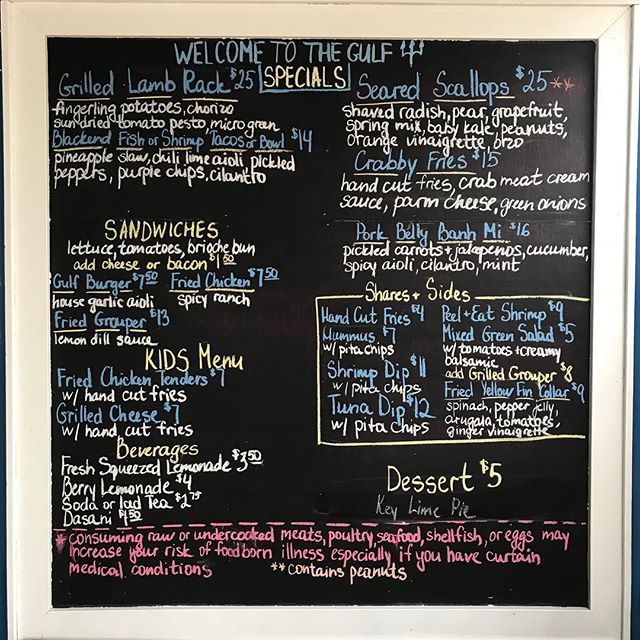 WELCOME TO THE GULF
SPECIALS
Grilled Lamb Rack $25
Fingerling potatoes, chorizo
sundried tomato pesto, micro green
Blackend Fish or Shrimp Tacos or Bowl $14
pineapple slaw, chili lime aioli, pickled
peppers, purple chips, cilantro
Seared Scallops $25**
shaved radish, pear, grapefruit,
spring mix, baby kale, peanuts,
orange vinaigrette, orzo
Crabby Fries $15
hand cut fries, crab meat cream
sauce, parm cheese, green onions
Pork Belly Banh Mi $16
pickled carrots + jalapenos, cucumber,
spicy aioli, cilantro, mint
SANDWICHES
lettuce, tomatoes, brioche bun
add cheese or bacon $1.50
Gulf Burger $7.50
house garlic aioli
Fried Chicken $7.50
spicy ranch
Fried Grouper $13
lemon dill sauce
KIDS Menu
Fried Chicken Tenders $7
w/ hand cut fries
Grilled Cheese $7
w/ hand cut fries
Beverages
Fresh Squeezed Lemonade $3.50
Berry Lemonade $4
Soda or Iced Tea $2.75
Dasani $1.50
Shares + Sides
Hand Cut Fries $4
Hummus $7
w/ pita chips
Shrimp Dip $11
w/ pita chips
Tuna Dip $12
w/ pita chips
Peel + Eat Shrimp $9
Mixed Green Salad $5
w/ tomatoes + creamy
balsamic
add Grilled Grouper $8
Fried Yellow Fin Collar $9
spinach, pepper jelly,
arugala, tomatoes,
ginger vinaigrette
Dessert $5
Key Lime Pie
*consuming raw or undercooked meats, poultry, seafood, shellfish, or eggs may
increase your risk of foodborn illness especially if you have curtain
medical conditions
**contains peanuts